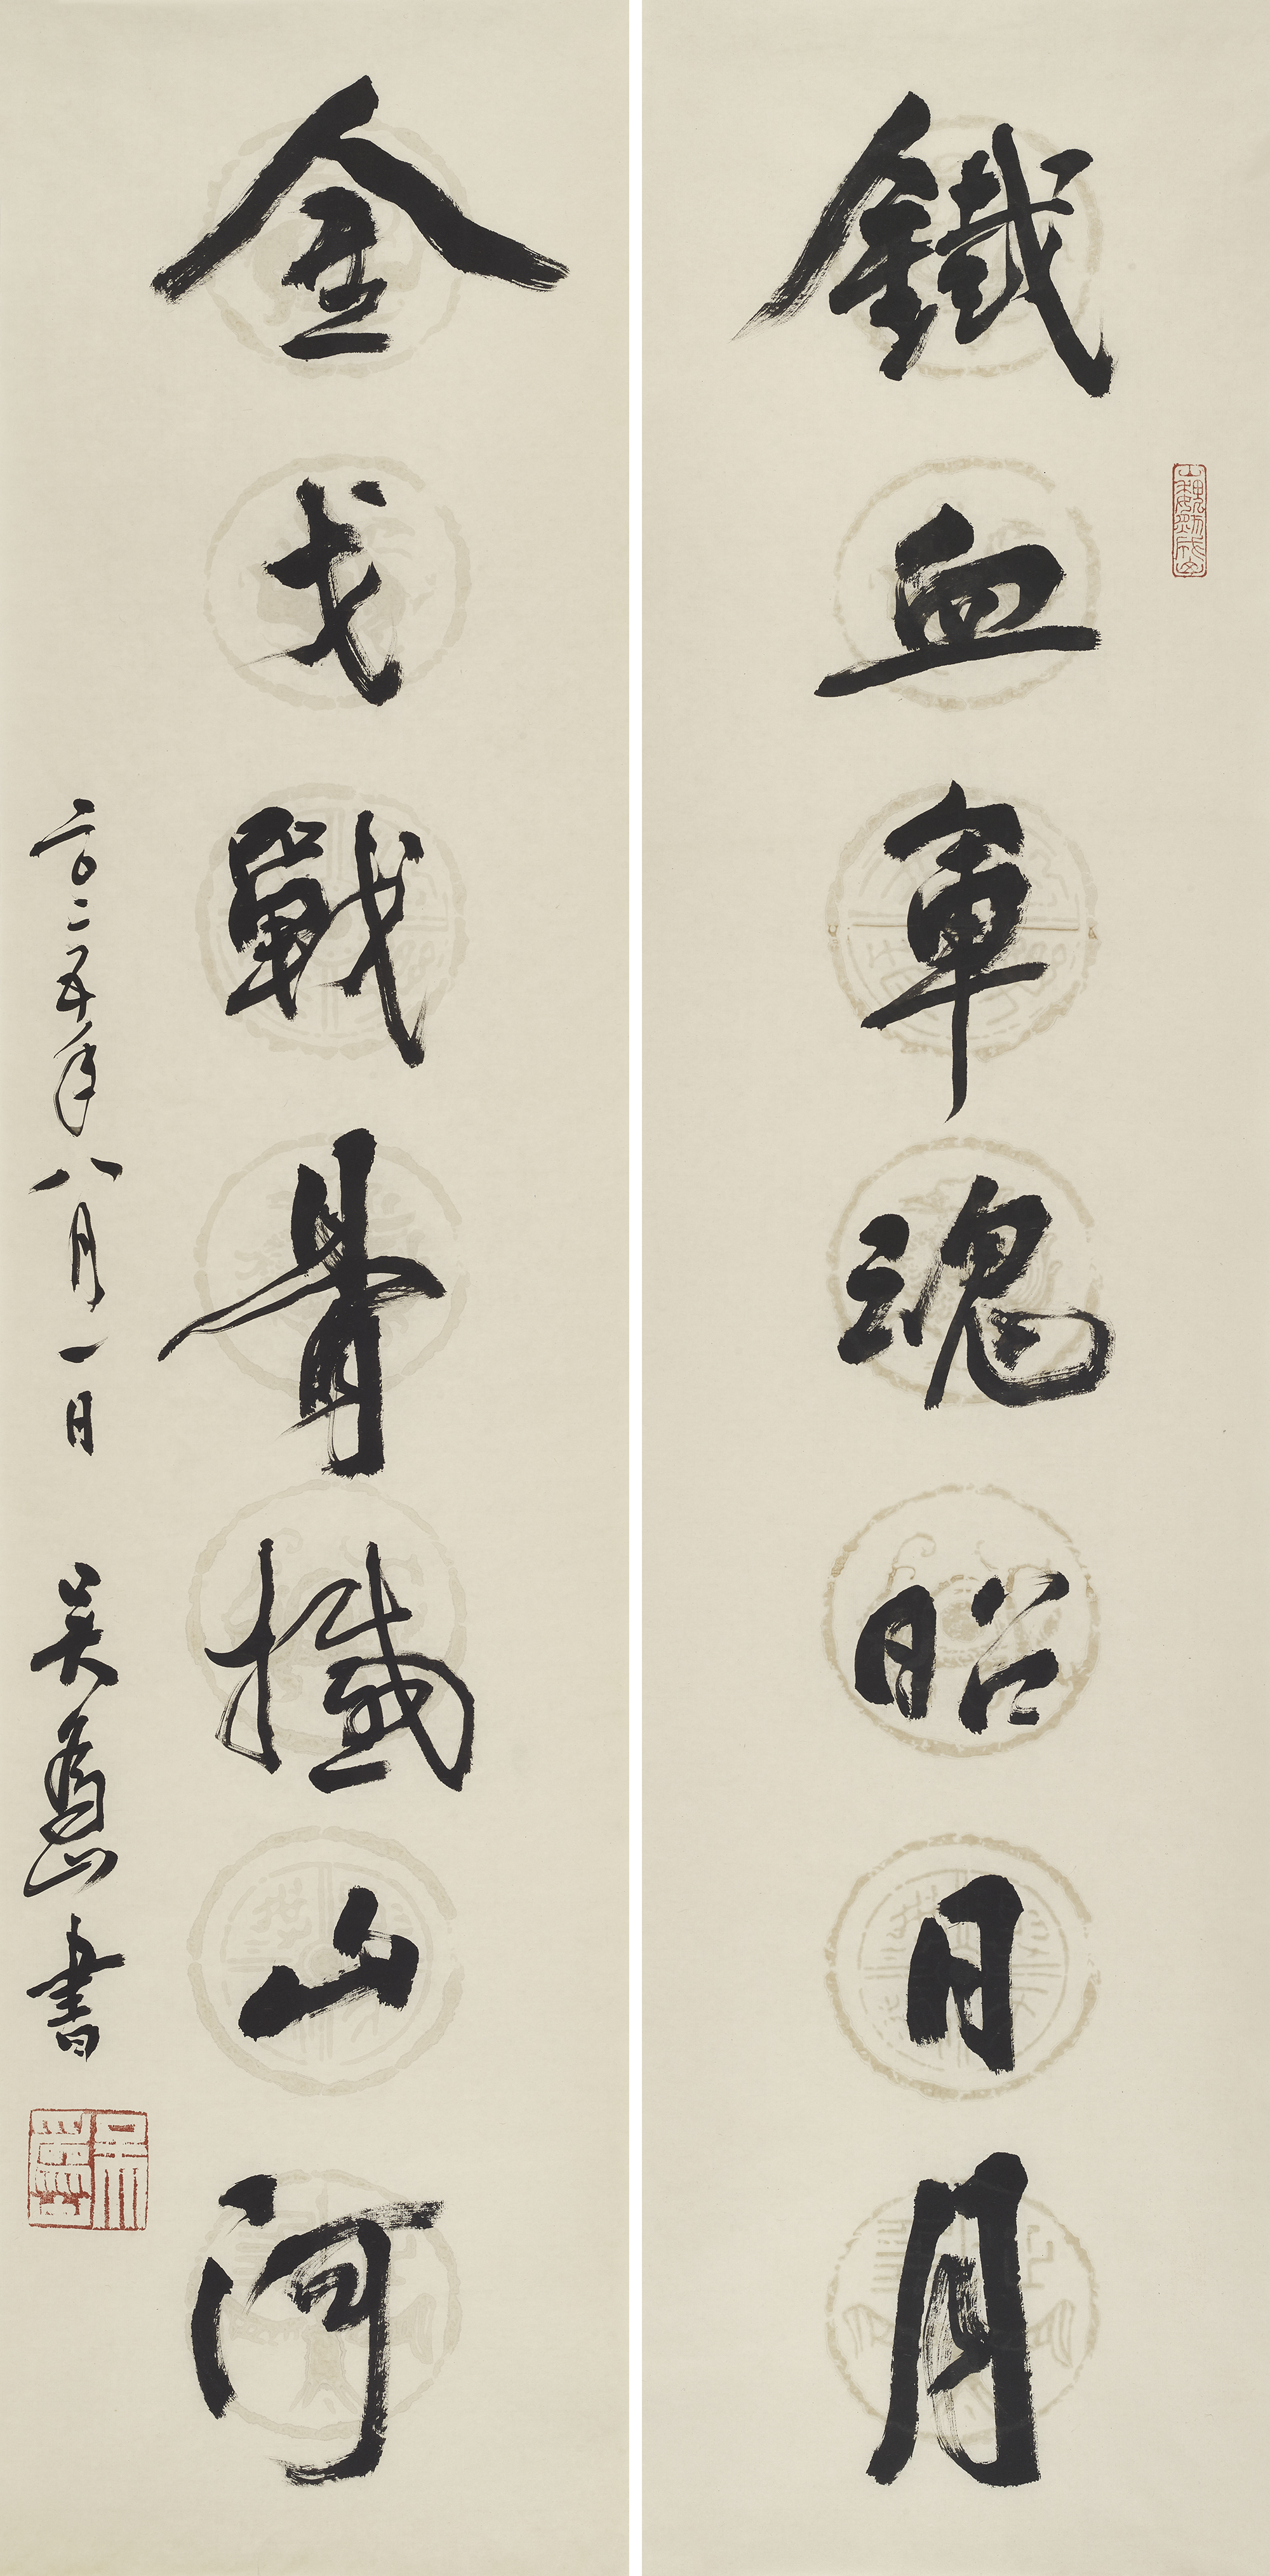 鐵血軍魂昭日月
金戈戰骨撼山河
二〇二五年八月一日 吴為山書